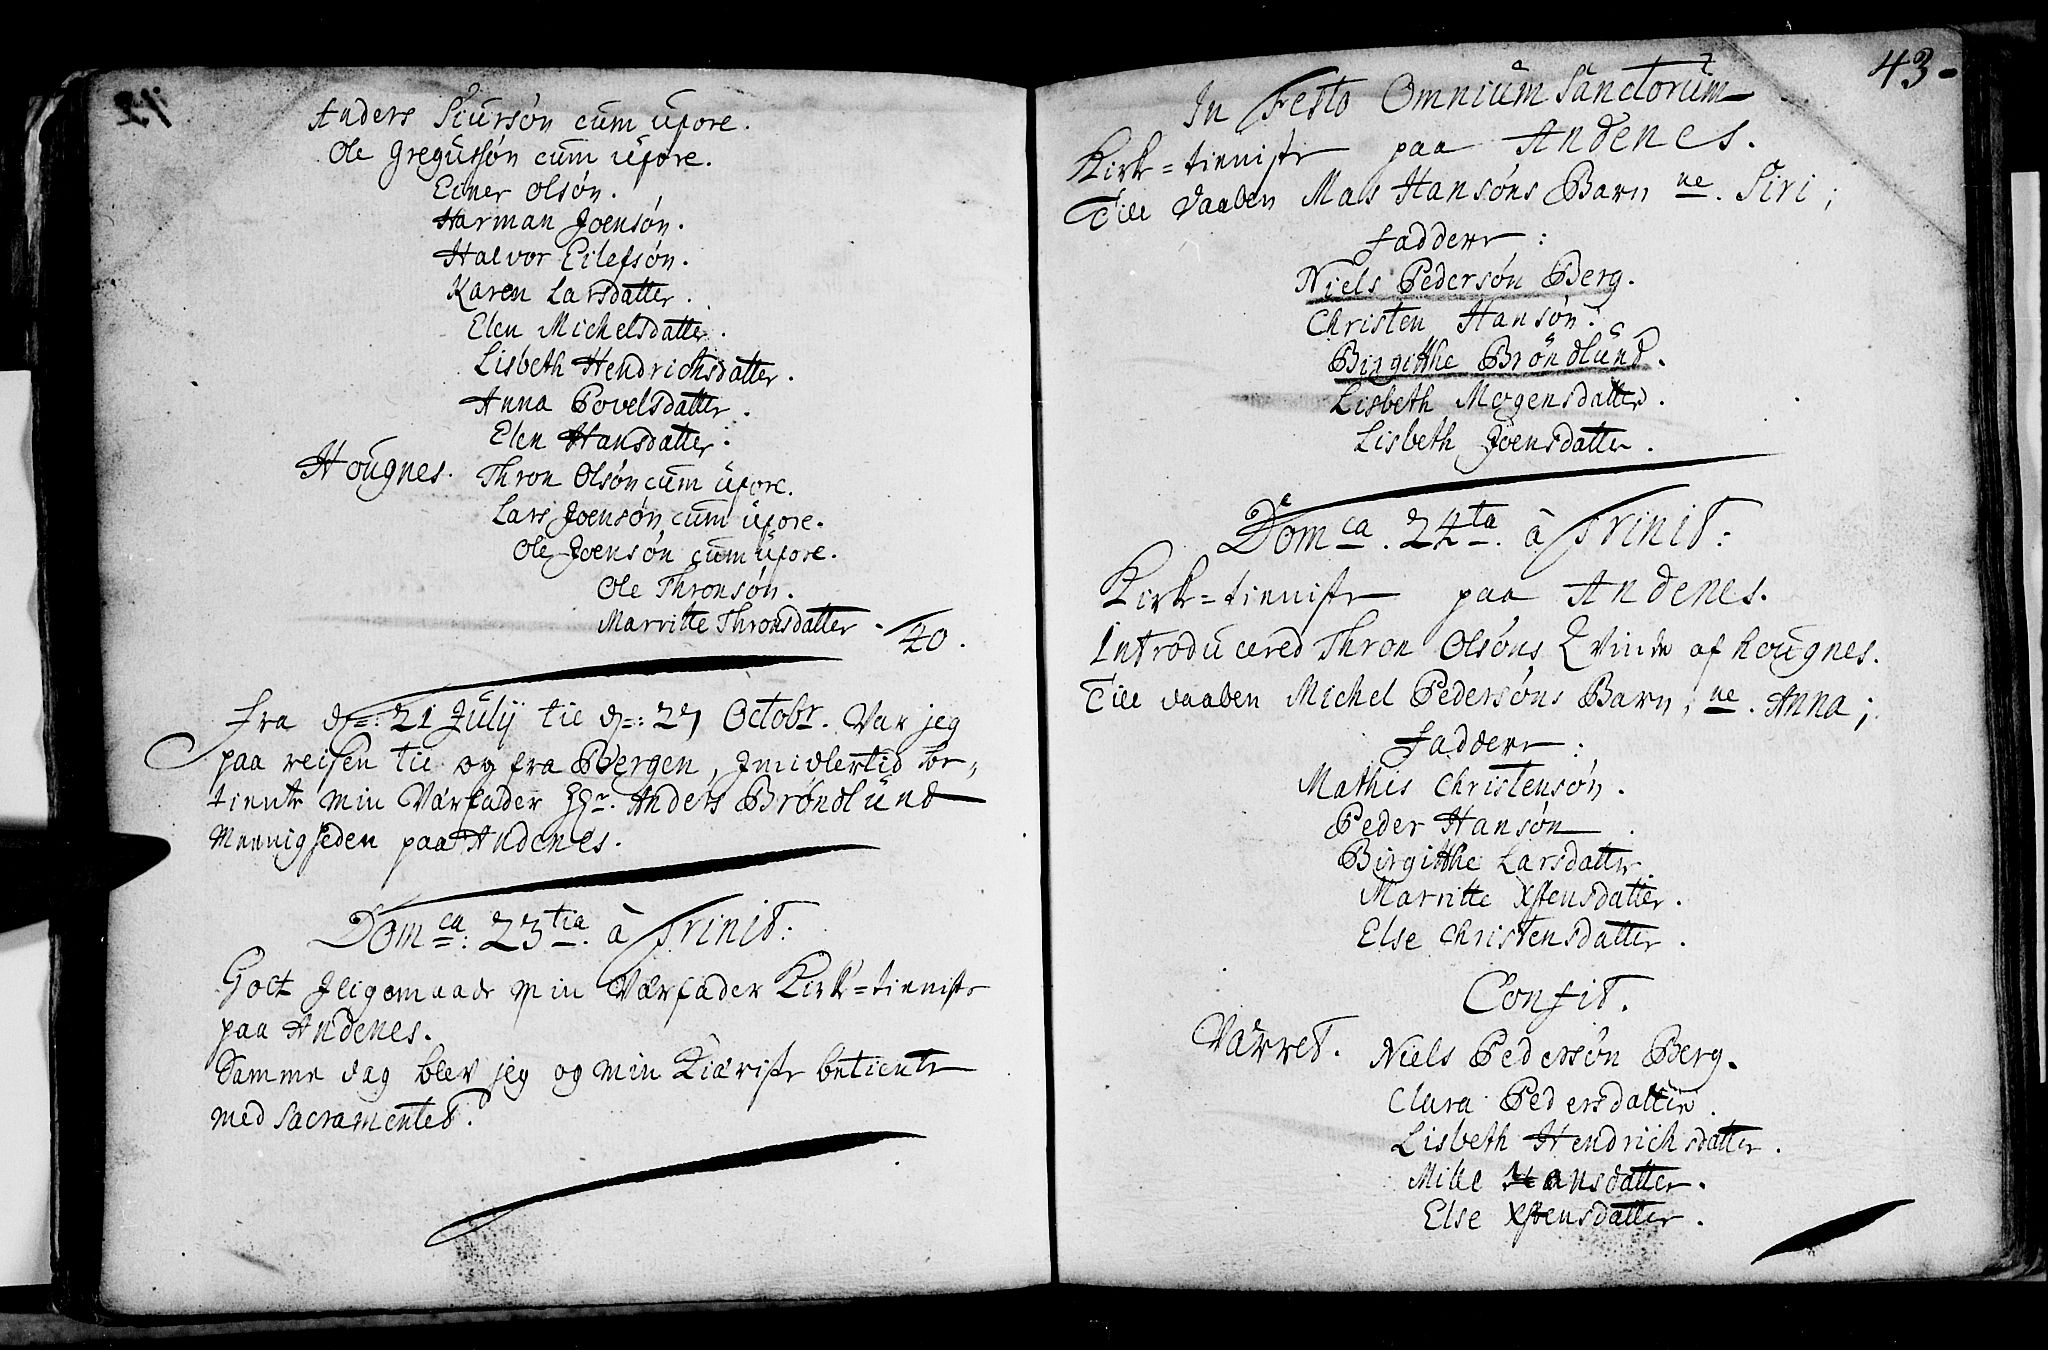 Anders Siursøn cum uxore.
Ole Gregussøn cum uxore.
Einer Olsøn.
Harman Joensøn.
Halvor Eilefsøn.
Karen Larsdatter.
Elen Michelsdatter.
Lisbeth Hendrichsdatter.
Anna Povelsdatter.
Elen Hansdatter.
Hougnes. Thron Olsøn cum uxore.
Lars Joensøn cum uxore.
Ole Joensøn cum uxore.
Ole Thronsøn.
Marritte Thronsdatter. 40.
Fra dn: 21 Julij til dn: 27 Octobr. Var jeg
paa reisen til og fra Bergen, Imidlertid be-
tiente min Værfader Hr. Anders Brøndlund
Menigheden paa Andenes.
Domca: 23tia. à Trinit:
Holt Jligemaade min Værfader Kirke=tieniste
paa Andenes.
Samme dag blev jeg og min Kiæriste betiente
med Sacramentet.
43.
In Festo Omnium Sanctorum
Kirke=tieniste paa Andenes.
Till Daaben Mals Hansøns Barn ne. Siri;
Faddere:
Niels Pedersøn Berg.
Christen Hansøn.
Birgitthe Brøndlund.
Lisbeth Mogensdatter.
Lisbeth Joensdatter.
Domca. 24ta. à Trinit:
Kirke=tieniste paa Andenes.
Introducered Thron Olsøns Qvinde af hougnes.
Till daaben Michel Pedersøns Barn, ne. Anna;
Faddere:
Mathis Christensøn.
Peder Hansøn.
Birgitthe Larsdatter.
Marritte Xstensdatter.
Else Christensdatter.
Confit.
Værret. Niels Pedersøn Berg.
Clara Pedersdatter.
Lisbeth Hendrichsdatter.
Mille Hansdatter.
Else Xstensdatter.